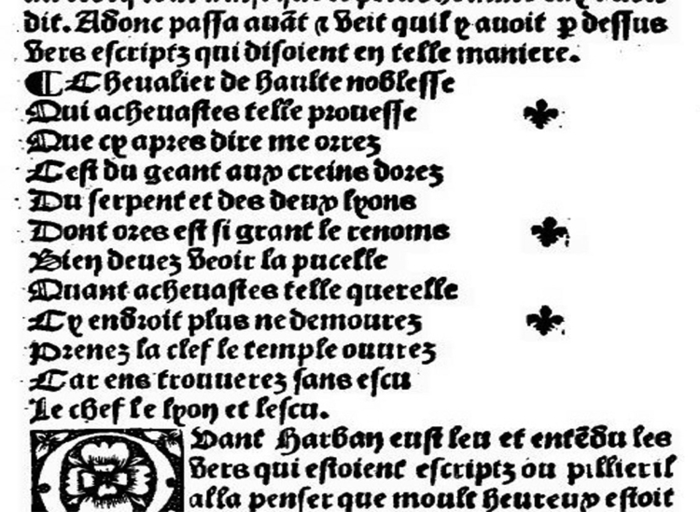 dit. Adonc passa auãt ⁊ veit quil y auoit ꝑ dessus
vers escriptz qui disoient en telle maniere.
¶ Cheualier de haulte noblesse
Qui acheuastes telle prouesse
Que cy apres dire me orrez
Cest du geant aux creins dorez
Du serpent et des deux lyons
Dont ores est si grant le renoms
Bien deuez veoir la pucelle
Quant acheuastes telle querelle
Cy endroit plus ne demourez
Prenez la clef le temple ouurez
Car ens trouuerez sans escu
Le chef le lyon et lescu.
Quant Harban eust leu et entẽdu les
vers qui estoient escriptz ou pillier il
alla penser que moult heureux estoit